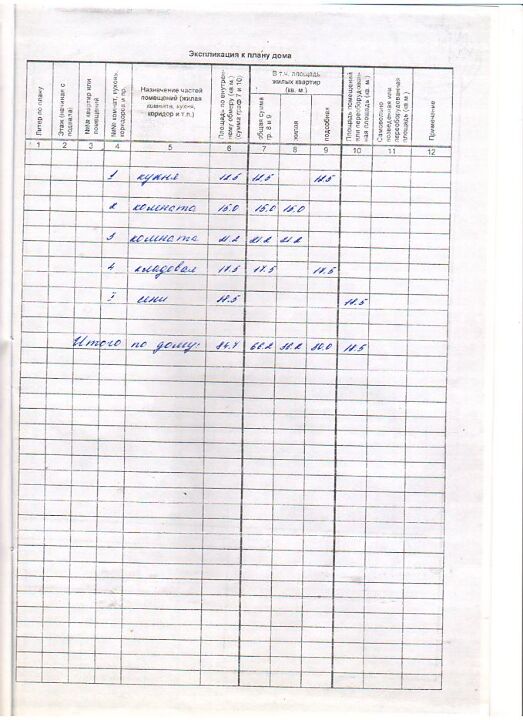 Экспликация к плану дома
Литер по плану
Этаж (начиная с подвала)
№№ квартир или помещений
№№ комнат, кухонь, коридоров и пр.
Назначение частей
помещений (жилая
комната, кухня,
коридор и т.п.)
Площадь по внутрен-
нему обмеру (кв.м.)
(сумма граф 7 и 10)
В т.ч. площадь
жилых квартир
(кв. м.)
общая сумма
гр. 8 и 9
жилая
подсобная
Площадь помещений
или переоборудован-
ная площадь (кв.м)
Самовольно
возведенная или
переоборудованная
площадь (кв.м.)
Примечание
1 2 3 4 5 6 7 8 9 10 11 12
1 кухня 12.5 12.5 12.5
2 комната 15.0 15.0 15.0
3 комната 21.2 21.2 21.2
4 кладовая 17.5 17.5 17.5
I сени 18.5 18.5
Итого по дому: 84.7 66.2 36.2 30.0 18.5